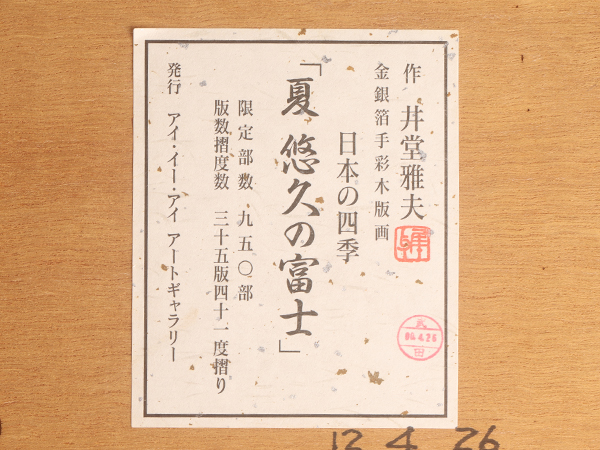 作 井堂雅夫
金銀箔手彩木版画
日本の四季
「夏 悠久の富士」
限定部数 九五〇部
版数摺度数 三十五版四十一度摺り
発行 アイ・イー・アイ アートギャラリー
12 4 26